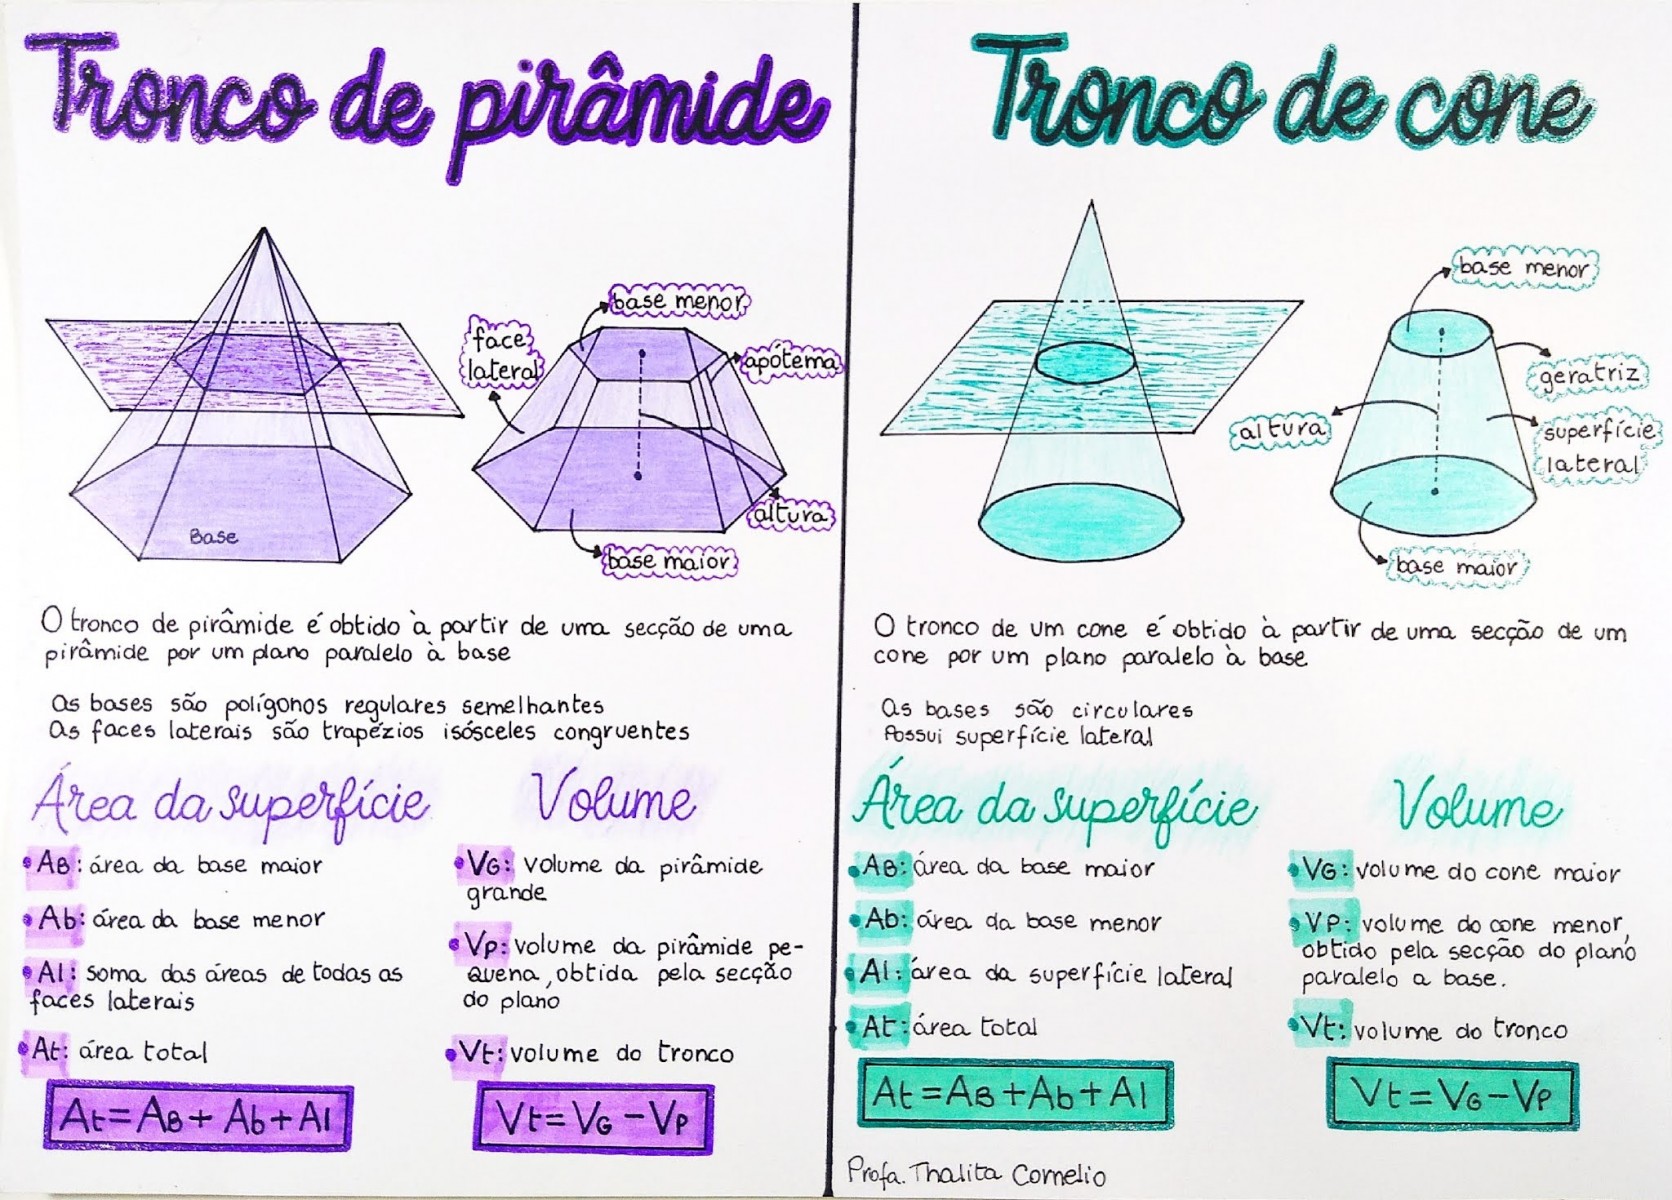 Tronco de pirâmide
base menor
face
lateral
apótema
altura
Base
base maior
O tronco de pirâmide é obtido à partir de uma secção de uma
pirâmide por um plano paralelo à base
As bases são polígonos regulares semelhantes
As faces laterais são trapézios isósceles congruentes
Área da superfície
AB: área da base maior
Ab: área da base menor
Al: soma das áreas de todas as
faces laterais
At: área total
At=AB+Ab+Al
Volume
VG: volume da pirâmide
grande
Vp: volume da pirâmide pe-
quena, obtida pela secção
do plano
Vt: volume do tronco
Vt=VG-VP
Tronco de cone
base menor
geratriz
altura
superfície
lateral
base maior
O tronco de um cone é obtido à partir de uma secção de um
cone por um plano paralelo à base
As bases são circulares
Possui superfície lateral
Área da superfície
AB: área da base maior
Ab: área da base menor
Al: área da superfície lateral
At: área total
At=AB+Ab+Al
Volume
VG: volume do cone maior
VP: volume do cone menor,
obtido pela secção do plano
paralelo a base.
Vt: volume do tronco
Vt=VG-VP
Profa. Thalita Cornelio